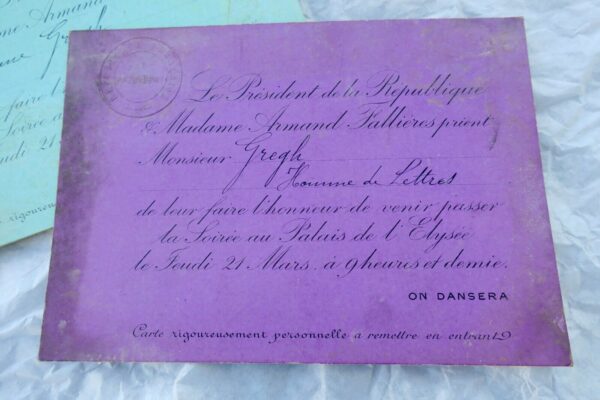 Le Président de la République
& Madame Armand Fallières prient
Monsieur Gregh
Homme de Lettres
de leur faire l'honneur de venir passer
la Soirée au Palais de l'Elysée
le Jeudi 21 Mars, à 9 heures et demie.
ON DANSERA
Carte rigoureusement personnelle à remettre en entrant
Armand
Gregh
faire l'
Soirée
Jeudi 21
rigoureu